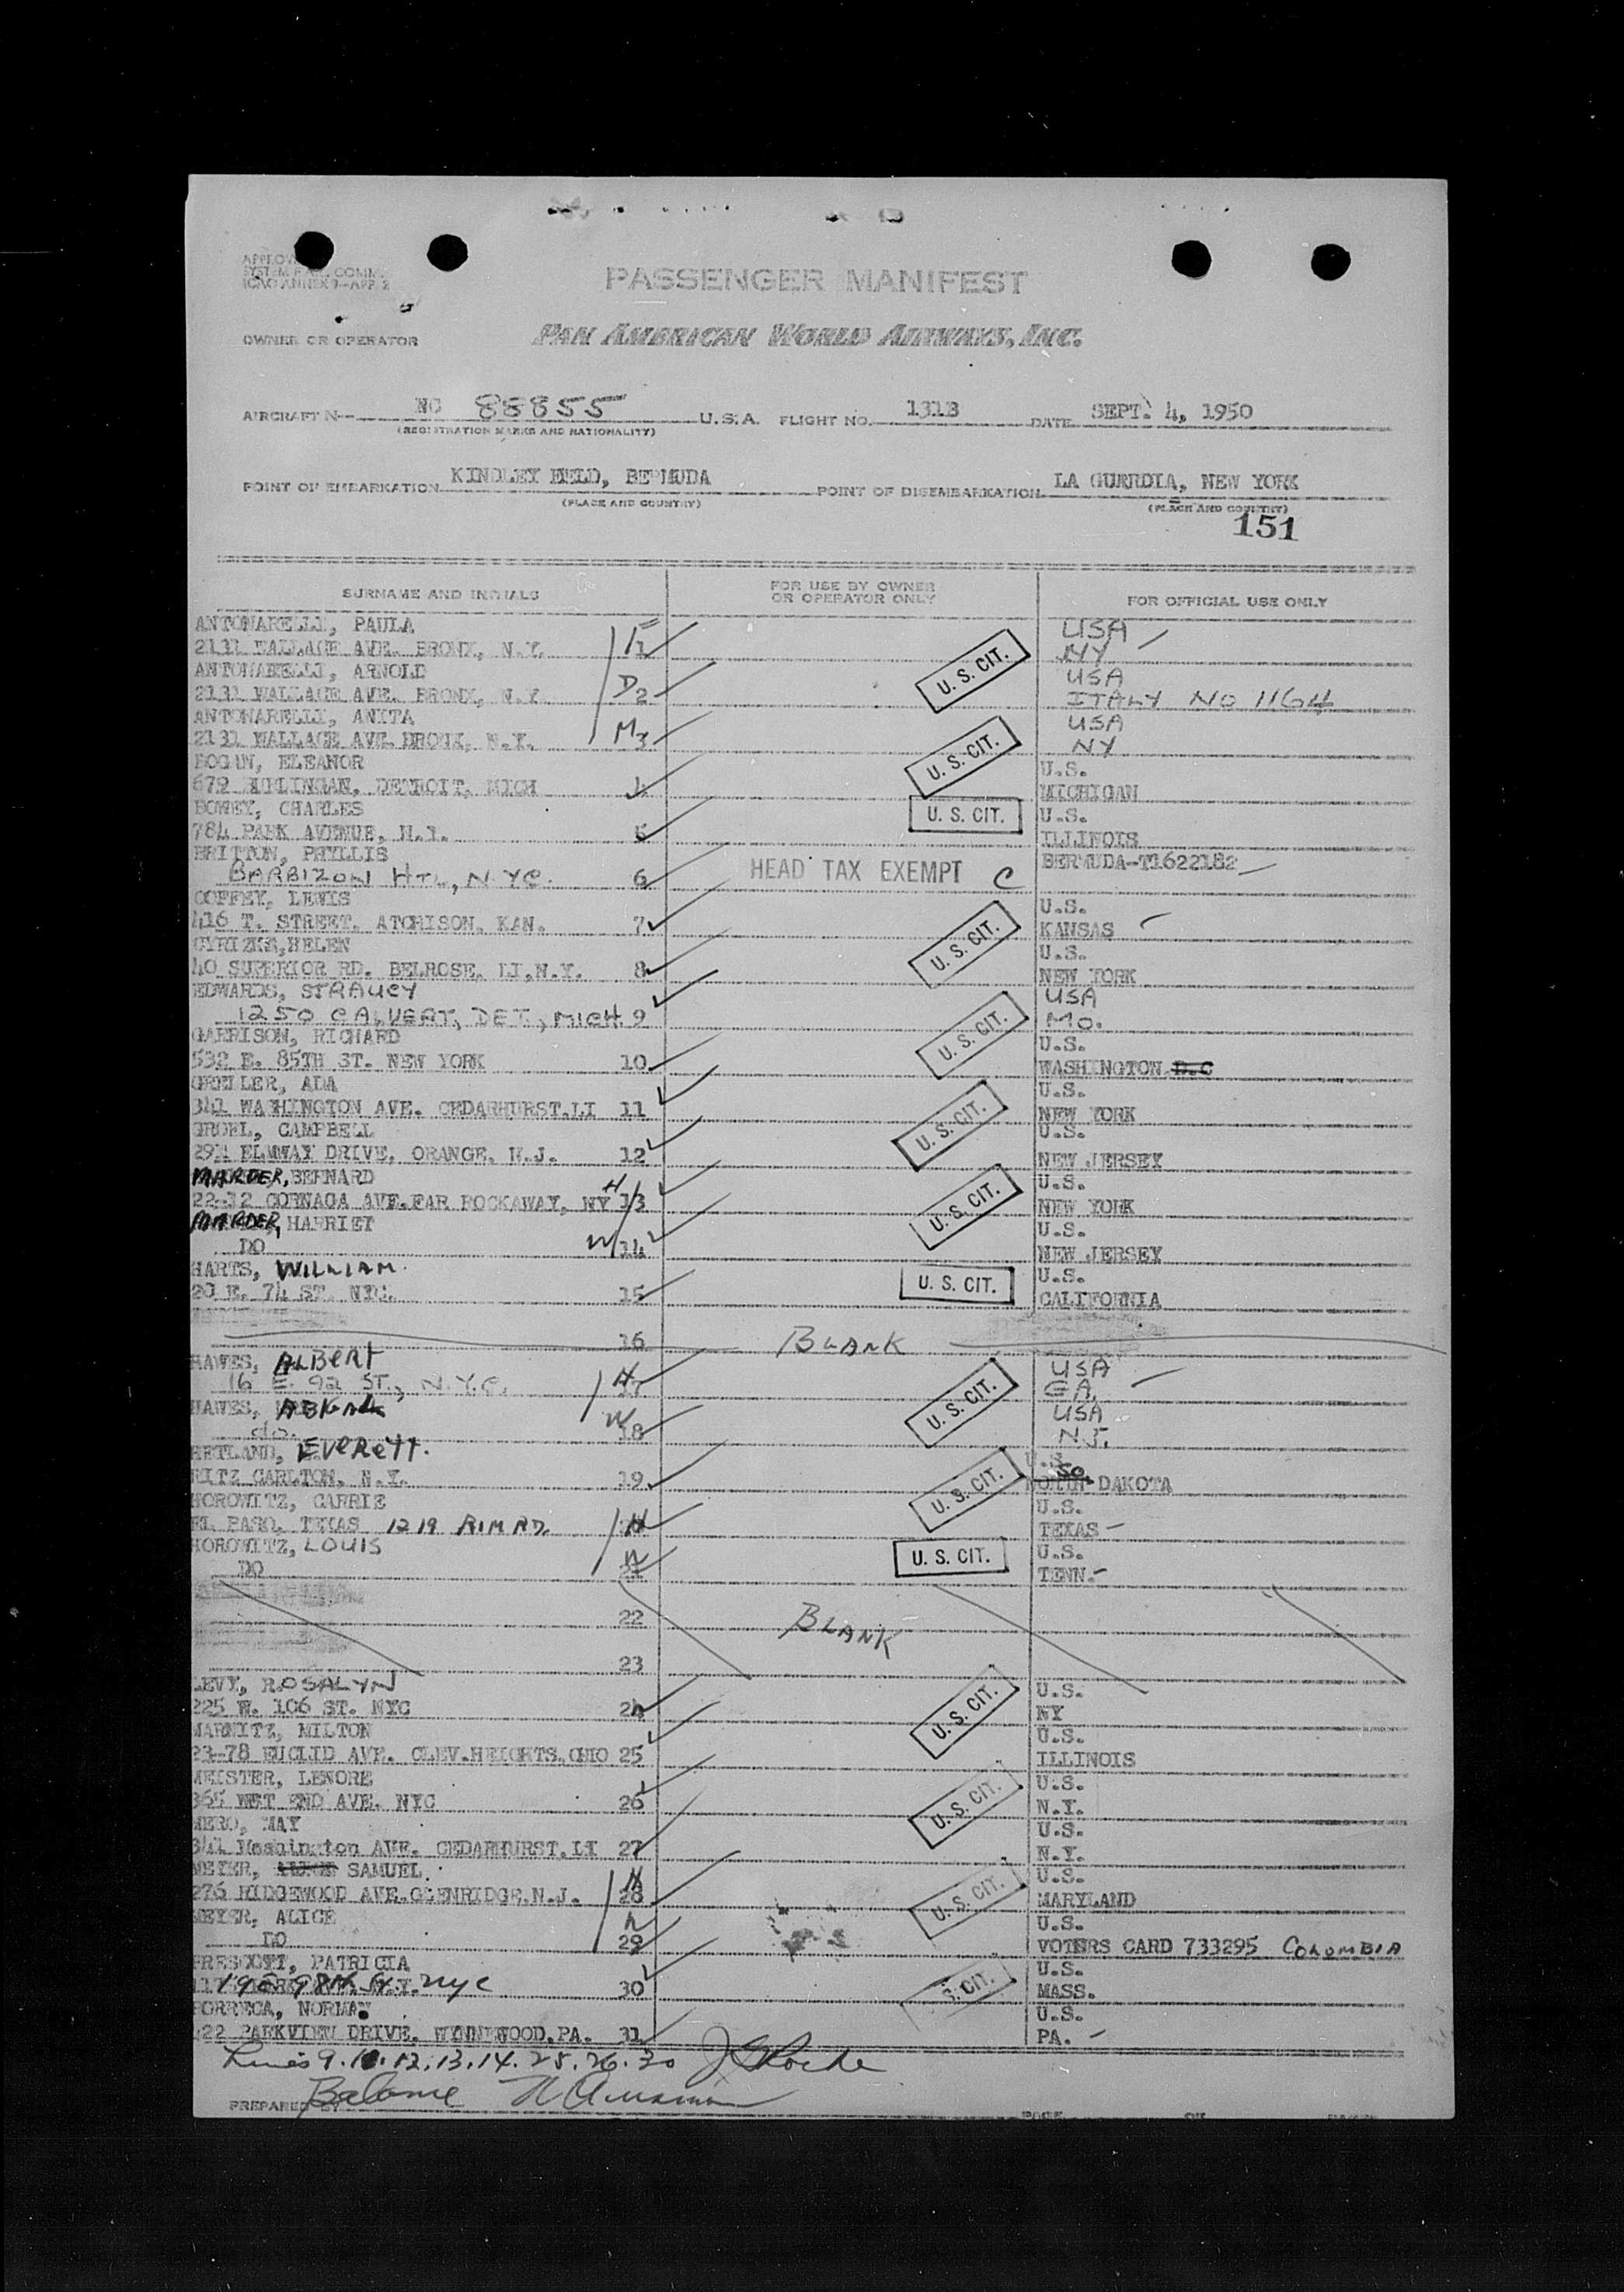 PASSENGER MANIFEST
OWNER OR OPERATOR PAN AMERICAN WORLD AIRWAYS, INC.
AIRCRAFT N NC 88855 U.S.A. FLIGHT NO. 131B DATE SEPT. 4, 1950
(REGISTRATION MARKS AND NATIONALITY)
POINT OF EMBARKATION KINDLEY FIELD, BERMUDA POINT OF DISEMBARKATION LA GUARDIA, NEW YORK
(PLACE AND COUNTRY) (PLACE AND COUNTRY)
151
SURNAME AND INITIALS FOR USE BY OWNER OR OPERATOR ONLY FOR OFFICIAL USE ONLY
ANTONARELLI, PAULA USA
2131 WALLACE AVE. BRONX, N.Y. 1 NY
ANTONARELLI, ARNOLD U. S. CIT. USA
2131 WALLACE AVE. BRONX, N.Y. D 2 ITALY NO 1164
ANTONARELLI, ANITA USA
2131 WALLACE AVE. BRONX, N.Y. M 3 NY
BOGAN, ELEANOR U. S. CIT. U.S.
DETROIT, MICH 4 MICHIGAN
CHARLES U. S. CIT. U.S.
784 PARK AVENUE, N.Y. 5 ILLINOIS
BRITTON, PHYLLIS HEAD TAX EXEMPT C BERMUDA-T1622182
BARBIZON HTL, N.YC. 6
COFFEY, LEWIS U.S.
416 T. STREET, ATCHISON, KAN. 7 KANSAS
HELEN U. S. CIT. U.S.
40 SUPERIOR RD. BELROSE, LI,N.Y. 8 NEW YORK
EDWARDS, STRAUCY USA
1250 CALVERT, DET., MICH. 9 MO.
GARRISON, RICHARD U. S. CIT. U.S.
532 E. 85TH ST. NEW YORK 10 WASHINGTON D.C
ADA U.S.
341 WASHINGTON AVE. CEDARHURST.LI 11 NEW YORK
GROEL, CAMPBELL U. S. CIT. U.S.
ELMWAY DRIVE, ORANGE, N.J. 12 NEW JERSEY
MARDER, BERNARD U.S.
22-12 CORNAGA AVE.FAR ROCKAWAY, NY H 13 NEW YORK
MARDER, HARRIET U. S. CIT. U.S.
DO W 14 NEW JERSEY
HARTS, WILLIAM. U. S. CIT. U.S.
20 E. 74 ST. NYC. 15 CALIFORNIA
16 BLANK
HAWES, ALBERT USA
16 E. 92 ST., N.Y.C. H 17 GA.
HAWES, U. S. CIT. USA
do. W 18 N.J.
EVERETT. U.S.
RITZ CARLTON, N.Y. 19 U. S. CIT. SO. DAKOTA
HOROWITZ, CARRIE U.S.
EL PASO, TEXAS 1219 RIM RD. TEXAS
HOROWITZ, LOUIS U. S. CIT. U.S.
DO TENN.
22 BLANK
23
LEVY, ROSALYN U.S.
225 W. 106 ST. NYC 24 U. S. CIT. NY
MILTON U.S.
23-78 EUCLID AVE. CLEV.HEIGHTS,OHIO 25 ILLINOIS
MEISTER, LENORE U.S.
365 WET END AVE. NYC 26 U. S. CIT. N.Y.
MERO, MAY U.S.
341 Washington AVE. CEDARHURST.LI 27 N.Y.
MEYER, SAMUEL. U.S.
276 RIDGEWOOD AVE.GLENRIDGE.N.J. H 28 U. S. CIT. MARYLAND
MEYER, ALICE U.S.
DO 29 VOTERS CARD 733295 COLOMBIA
PRESCOTT, PATRICIA U.S.
98th St. nyc 30 S. CIT. MASS.
PORRECA, NORMAN U.S.
422 PARKVIEW DRIVE, WYNNEWOOD.PA. 31 PA.
Lines 9.10.12.13.14.25.26.30
PREPARED BY